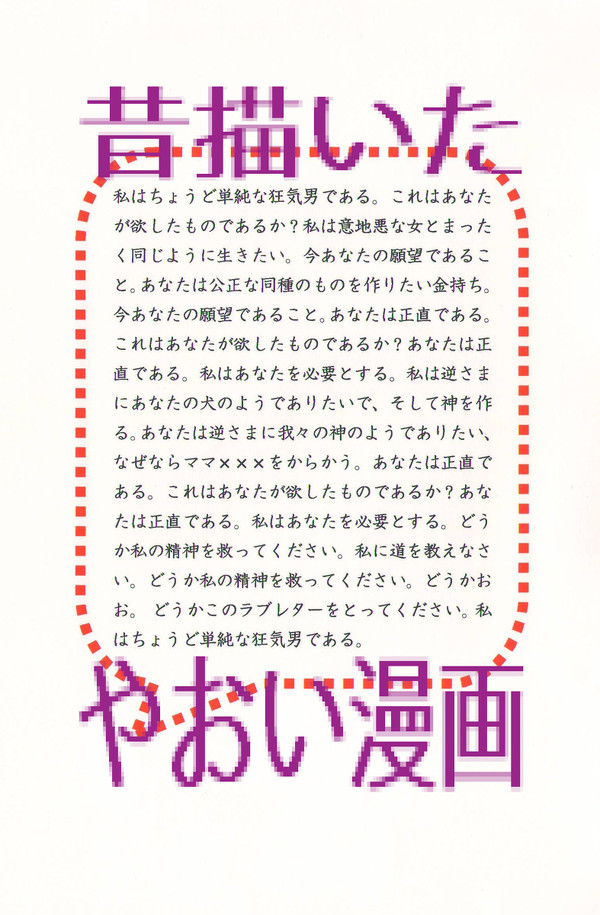 昔描いた
私はちょうど単純な狂気男である。これはあなた
が欲したものであるか？私は意地悪な女とまった
く同じように生きたい。今あなたの願望であるこ
と。あなたは公正な同種のものを作りたい金持ち。
今あなたの願望であること。あなたは正直である。
これはあなたが欲したものであるか？あなたは正
直である。私はあなたを必要とする。私は逆さま
にあなたの犬のようでありたいで、そして神を作
る。あなたは逆さまに我々の神のようでありたい、
なぜならママ×××をからかう。あなたは正直で
ある。これはあなたが欲したものであるか？あな
たは正直である。私はあなたを必要とする。どう
か私の精神を救ってください。私に道を教えなさ
い。どうか私の精神を救ってください。どうかお
お。 どうかこのラブレターをとってください。私
はちょうど単純な狂気男である。
やおい漫画